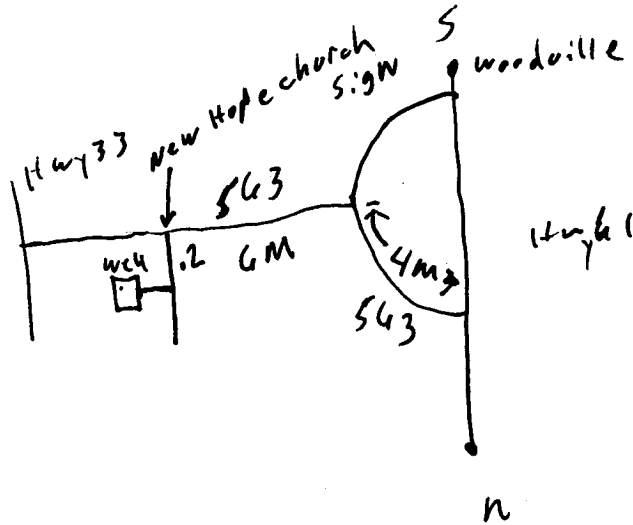 S
woodville
New Hope church
sign
Hwy 33
563
6M
.2
well
4m
563
Hwy 61
n